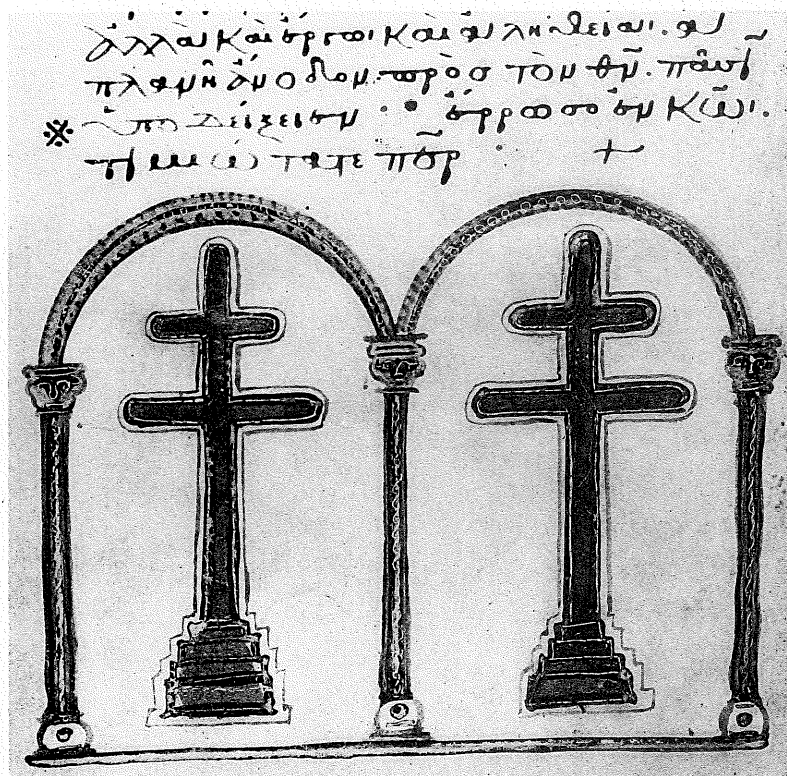 ἀλλὰ καὶ ἔργωι καὶ ἀληθείαι. ἀ
πλανῆ ἄνοδον. πρὸς τὸν θν̅. πᾶσι
※ ὑποδείξειεν · · ἔρρωσο ἐν κω̅ι.
τιμιώτατε περ̅ · +